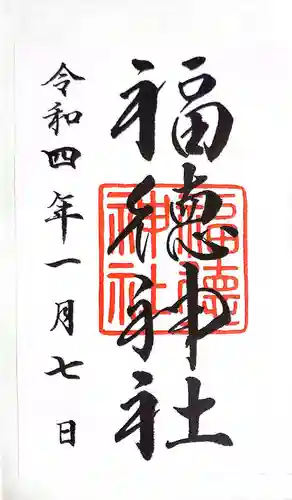 福徳神社
令和四年一月七日
福徳
神社